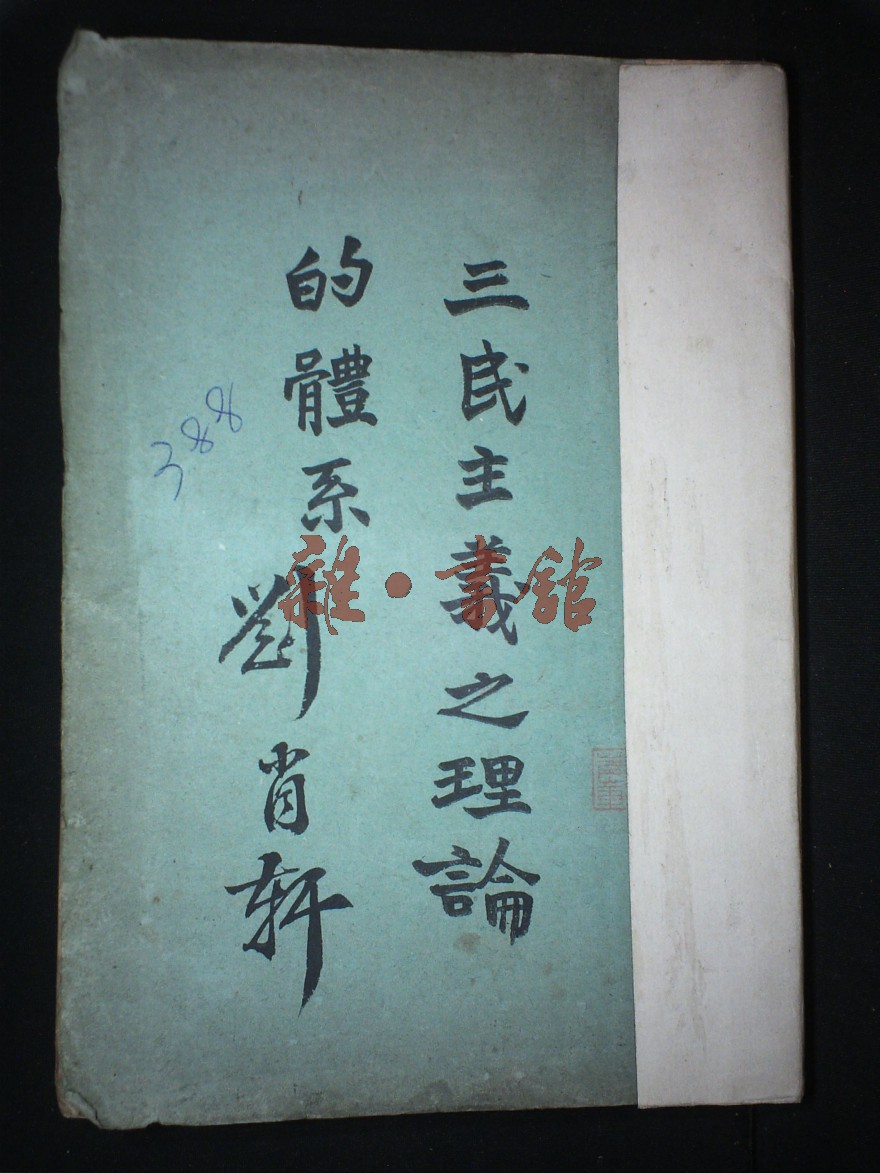 三民主義之理論
的體系
劉肖軒
388
雜·書館